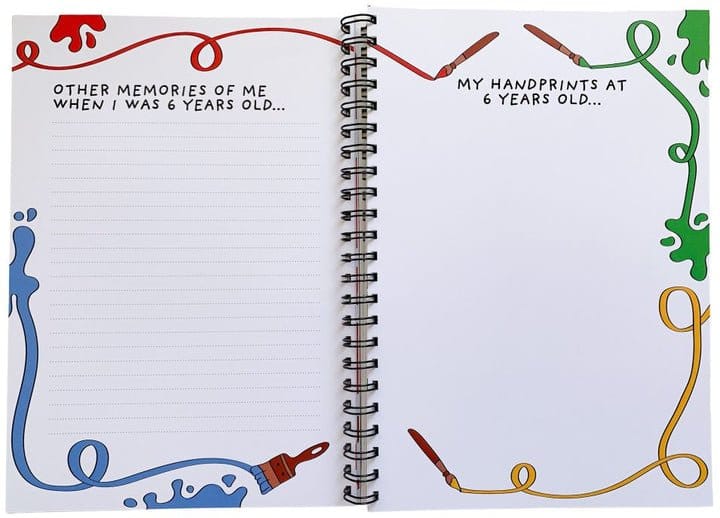 OTHER MEMORIES OF ME
WHEN I WAS 6 YEARS OLD...
MY HANDPRINTS AT
6 YEARS OLD...